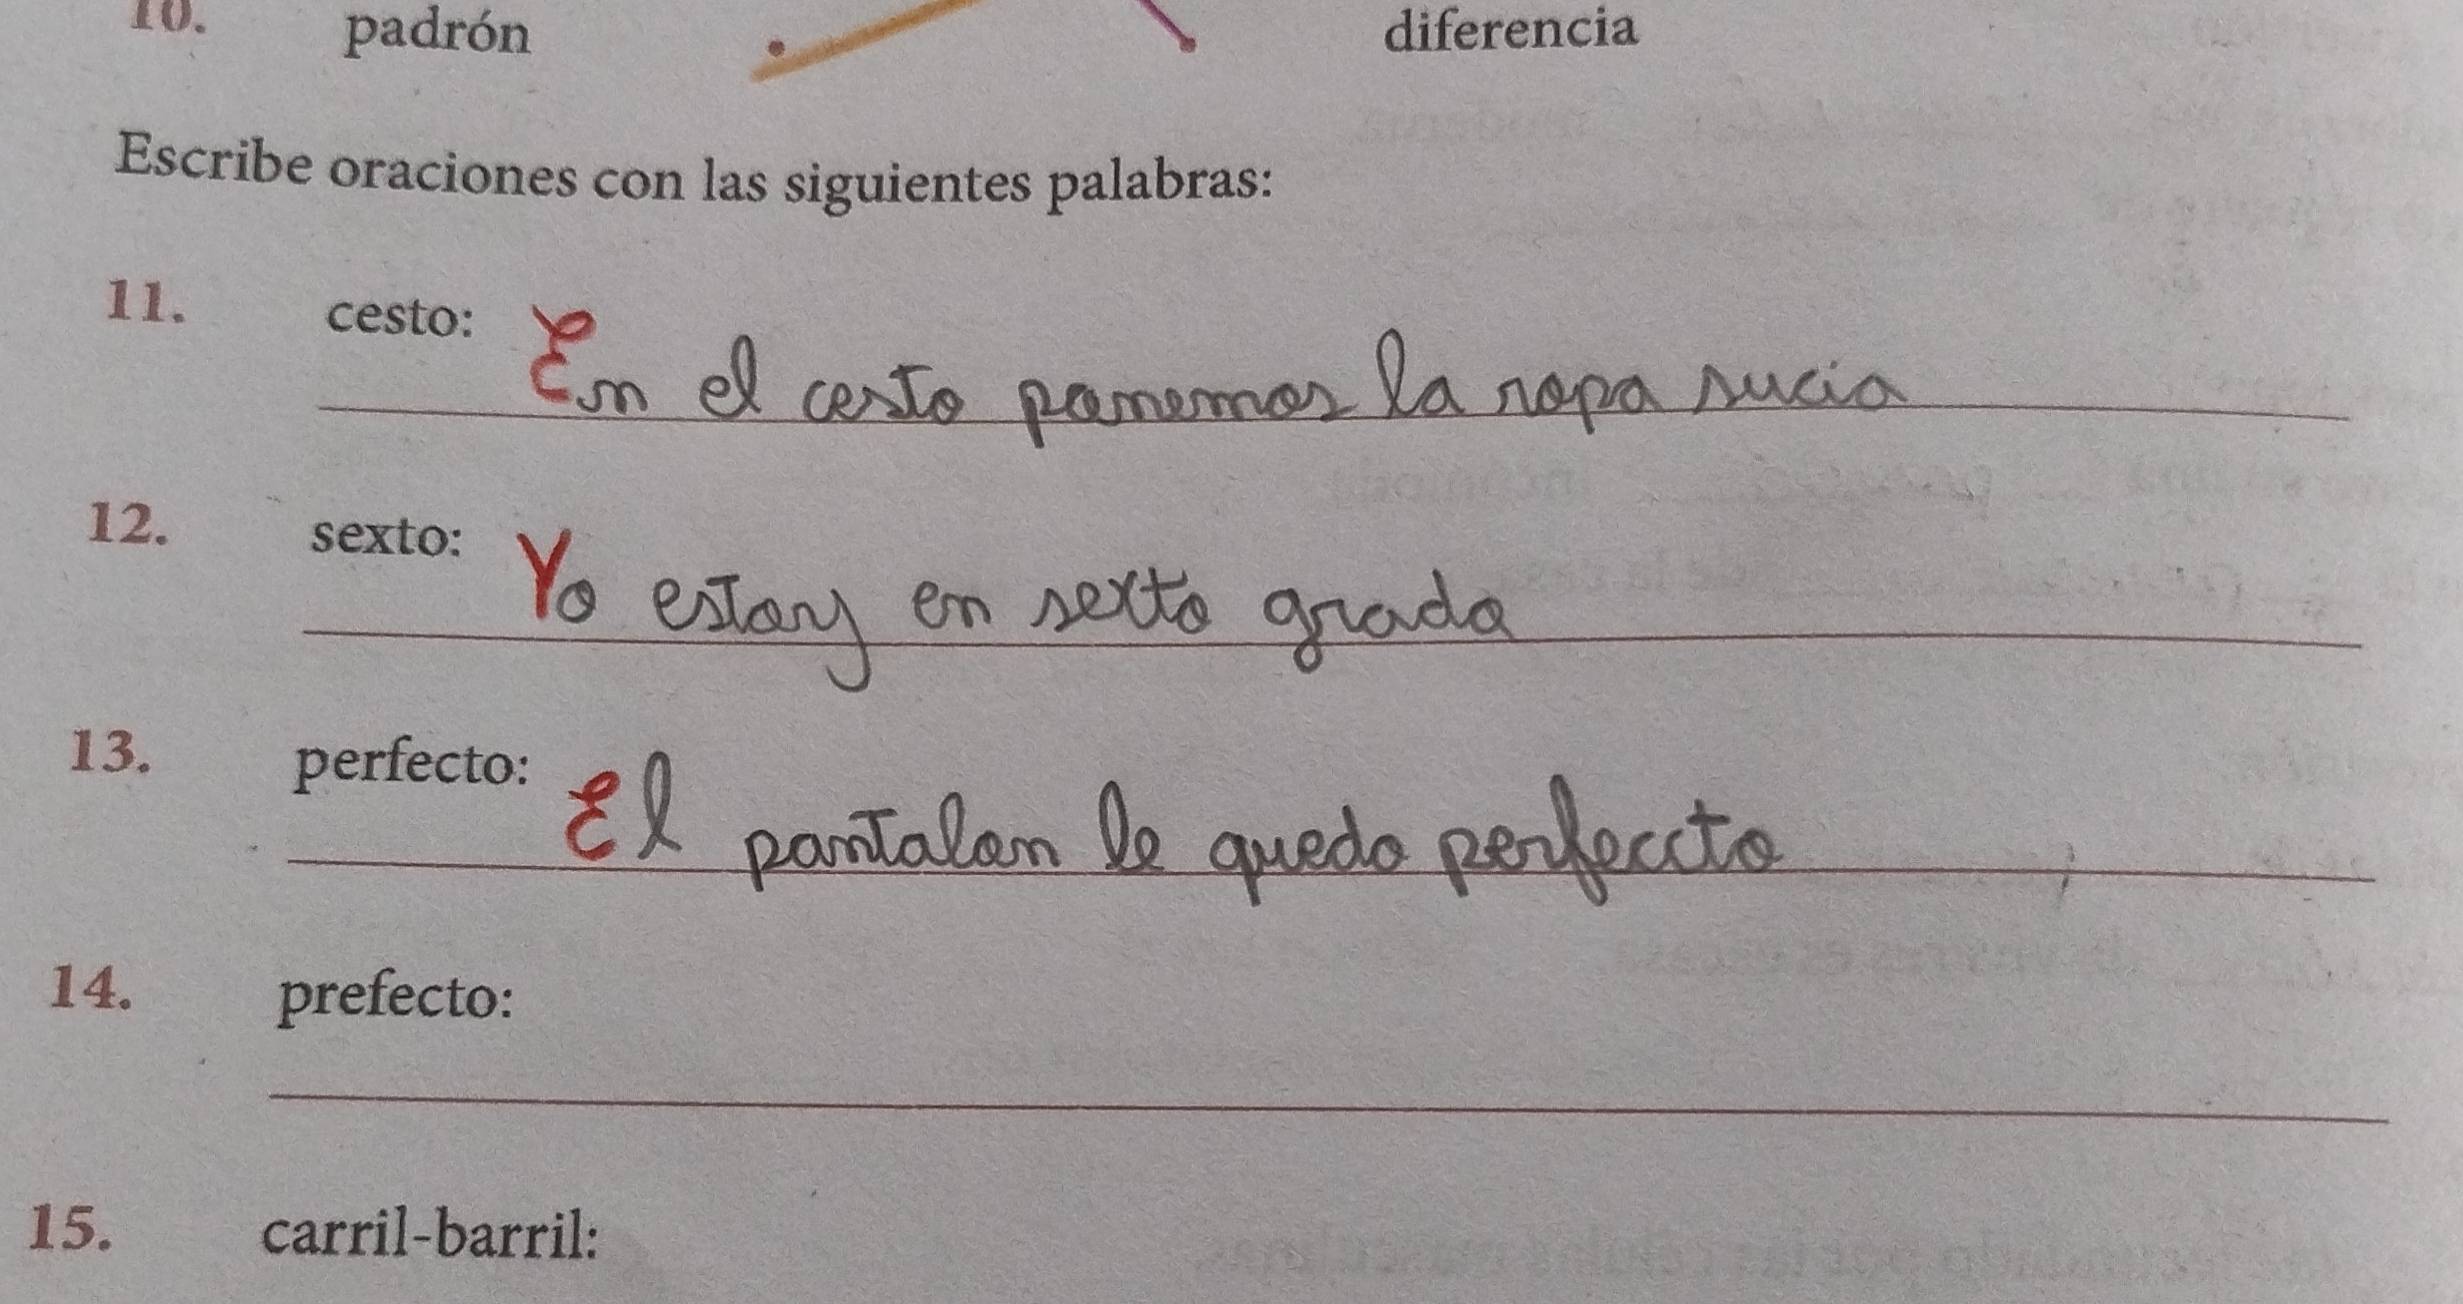 10. padrón diferencia
Escribe oraciones con las siguientes palabras:
11. cesto: En el cesto ponemos la ropa sucia
12. sexto: Yo estoy en sexto grado
13. perfecto: El pantalon le quedo perfeccto
14. prefecto:
15. carril-barril: